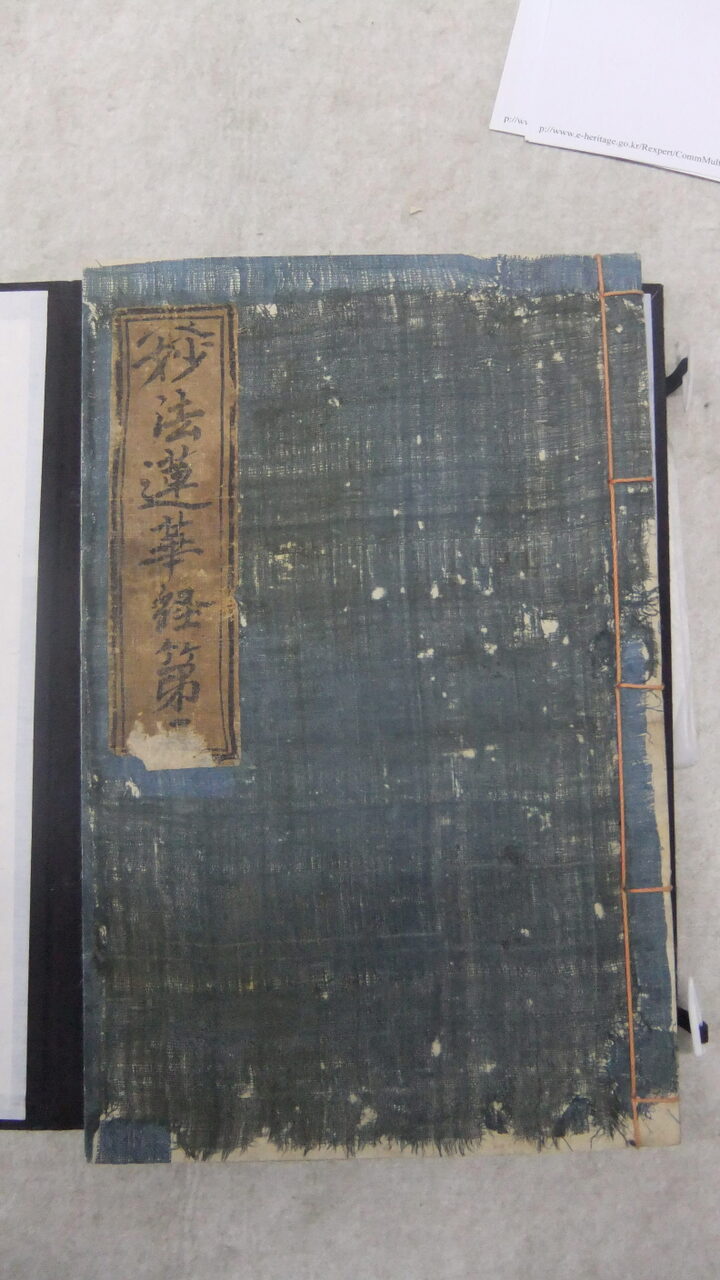 p://ww
p://www.e-heritage.go.kr/Rexpert/CommMult
妙法蓮華経第